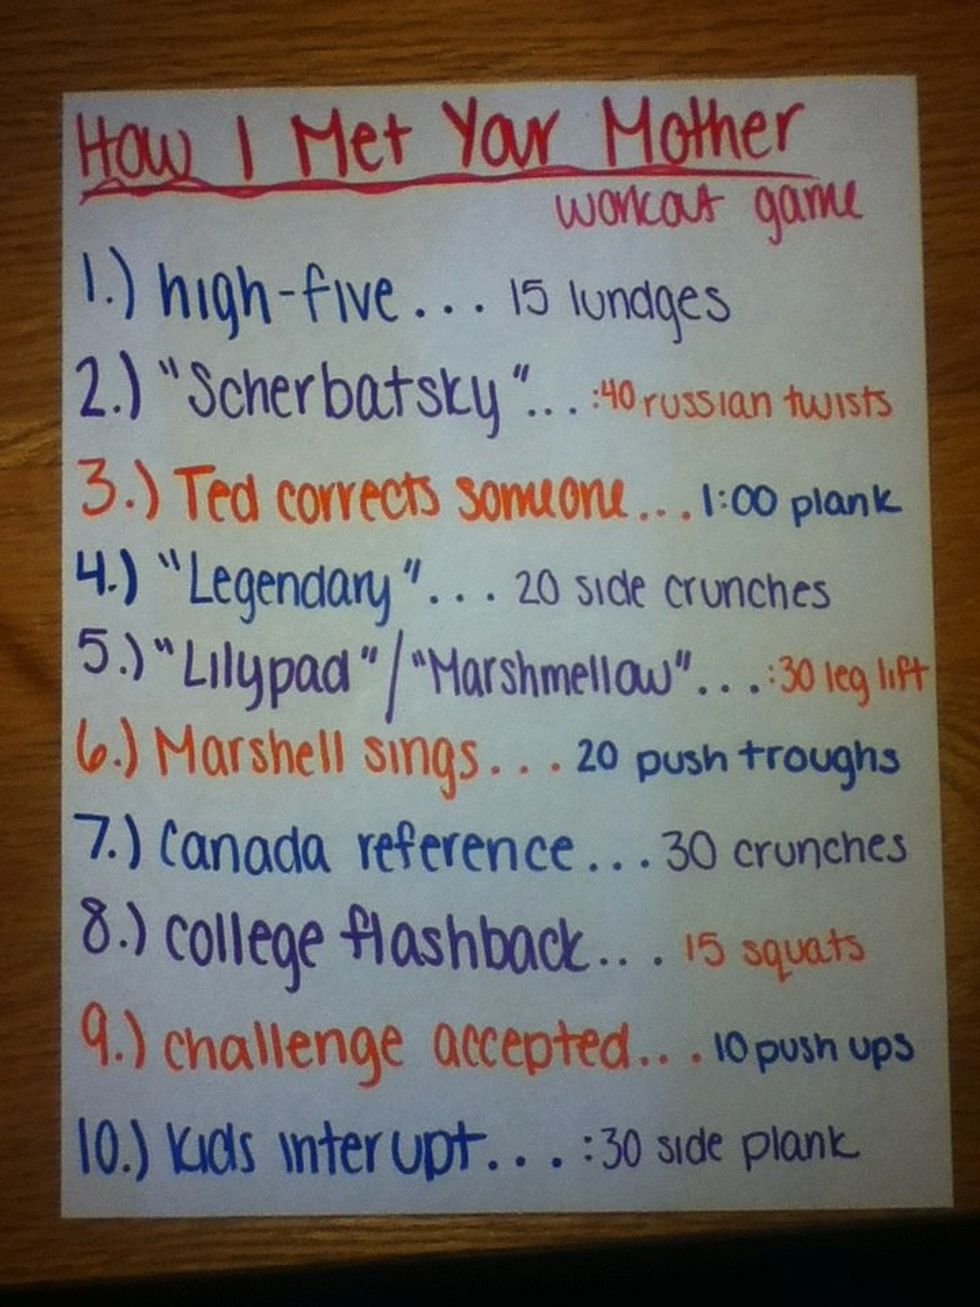 How I Met Your Mother
workout game
1.) high-five... 15 lundges
2.) "Scherbatsky"... :40 russian twists
3.) Ted corrects someone... 1:00 plank
4.) "Legendary"... 20 side crunches
5.) "Lilypad"/"Marshmellow"... :30 leg lift
6.) Marshell sings... 20 push troughs
7.) Canada reference... 30 crunches
8.) college flashback... 15 squats
9.) challenge accepted... 10 push ups
10.) Kids interupt... :30 side plank